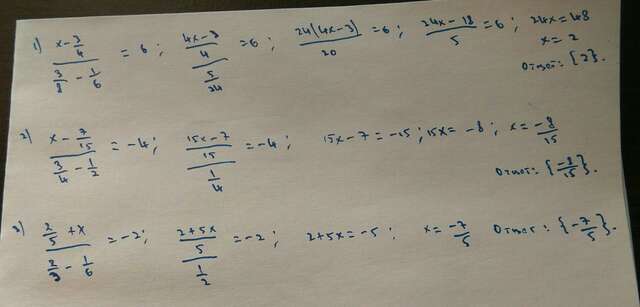 1) (x - 3/4)/(3/8 - 1/6) = 6; ((4x - 3)/4)/(5/24) = 6; 24(4x - 3)/20 = 6; (24x - 18)/5 = 6; 24x = 48
x = 2
Ответ: {2}.
2) (x - 7/15)/(3/4 - 1/2) = -4; ((15x - 7)/15)/(1/4) = -4; 15x - 7 = -15; 15x = -8; x = -8/15
Ответ: {-8/15}.
3) (2/5 + x)/(2/3 - 1/6) = -2; ((2 + 5x)/5)/(1/2) = -2; 2 + 5x = -5; x = -7/5 Ответ: {-7/5}.